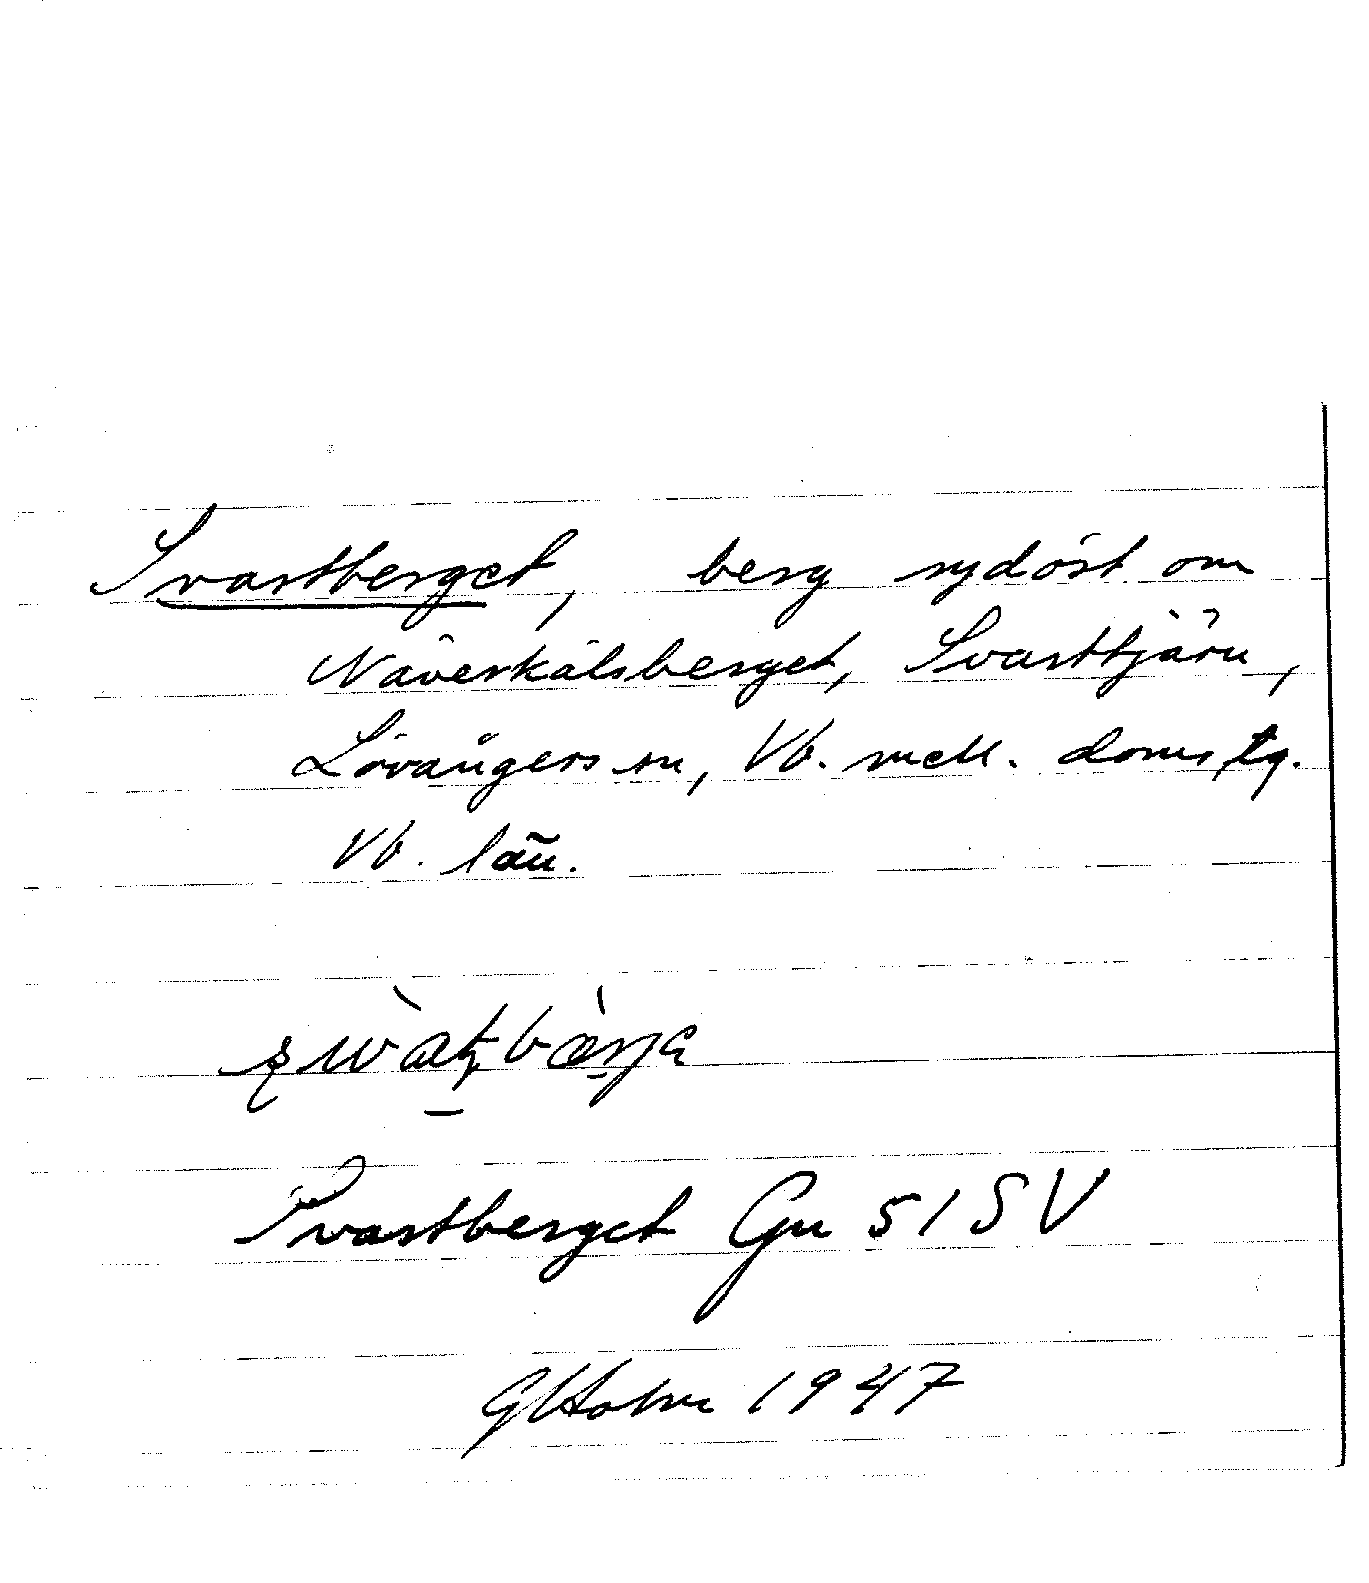 Svartberget, berg sydöst om
Näverkälsberget, Svarttjärn,
Lövångers sn, Vb. mell. doms tg.
Vb. län.
Svartberget Gu 51 SV
GHolm 1947